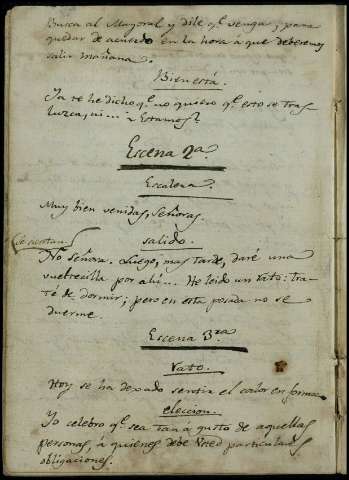 Busca al Mayoral y dile q.e venga, para
quedar de acuerdo en la hora á que deberemos
salir mañana.
Bien está.
Ya te he dicho q.e no quiero q.e esto se tras
luzca, ni... ¿Estamos?
Escena 2.a
Escalera.
Muy bien venidas, Señoras.
salido.
Se acostan
No Señora. Luego, mas tarde, daré una
vueltecilla por ahí... He leido un rato: tra-
té de dormir; pero en esta posada no se
duerme.
Escena 3.ra
rato.
Hoy se ha dexado sentir el calor en forma.
eleccion.
Yo celebro q.e sea tan á gusto de aquellas
personas, á quienes debe Vsted particulares
obligaciones.